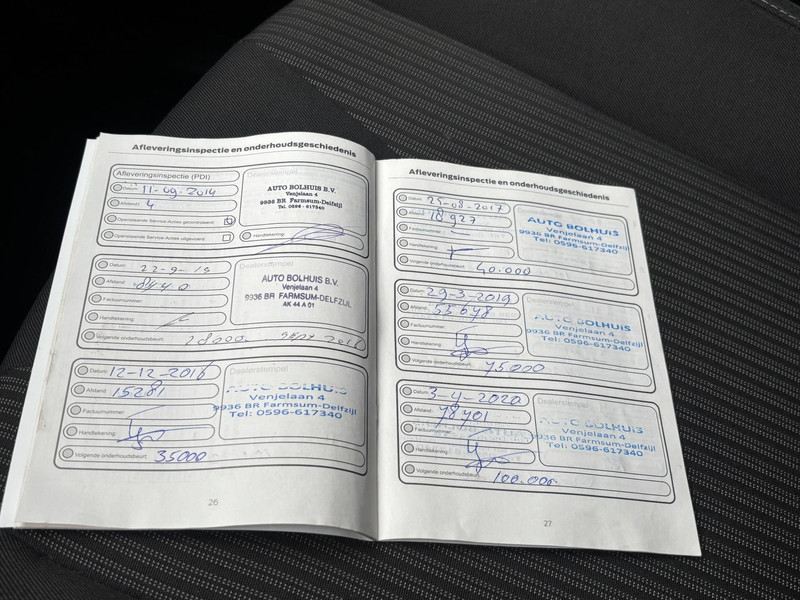 Afleveringsinspectie en onderhoudsgeschiedenis
Afleveringsinspectie (PDI)
Datum: 11-09-2014
Afstand: 4
Openstaande Service Acties gecontroleerd
Openstaande Service Acties uitgevoerd
Dealerstempel
AUTO BOLHUIS B.V.
Venjelaan 4
9936 BR Farmsum-Delfzijl
Tel. 0596 - 617340
Handtekening:
Datum: 22-9-15
Afstand:
Factuurnummer:
Handtekening:
Volgende onderhoudsbeurt:
Dealerstempel
AUTO BOLHUIS B.V.
Venjelaan 4
9936 BR FARMSUM-DELFZIJL
AK 44 A 01
Datum: 12-12-2016
Afstand: 15281
Factuurnummer:
Handtekening:
Volgende onderhoudsbeurt: 35000
Dealerstempel
AUTO BOLHUIS
Venjelaan 4
9936 BR Farmsum-Delfzijl
Tel: 0596-617340
26
Afleveringsinspectie en onderhoudsgeschiedenis
Datum: 29-08-2017
Afstand: 18927
Factuurnummer:
Handtekening:
Volgende onderhoudsbeurt: 40.000
AUTO BOLHUIS
Venjelaan 4
9936 BR Farmsum-Delfzijl
Tel: 0596-617340
Datum: 29-3-2019
Afstand: 55678
Factuurnummer:
Handtekening:
Volgende onderhoudsbeurt: 75000
Dealerstempel
AUTO BOLHUIS
Venjelaan 4
9936 BR Farmsum-Delfzijl
Tel: 0596-617340
Datum: 3-4-2020
Afstand: 78701
Factuurnummer:
Handtekening:
Volgende onderhoudsbeurt: 100.000
Dealerstempel
AUTO BOLHUIS
Venjelaan 4
9936 BR Farmsum-Delfzijl
Tel: 0596-617340
27